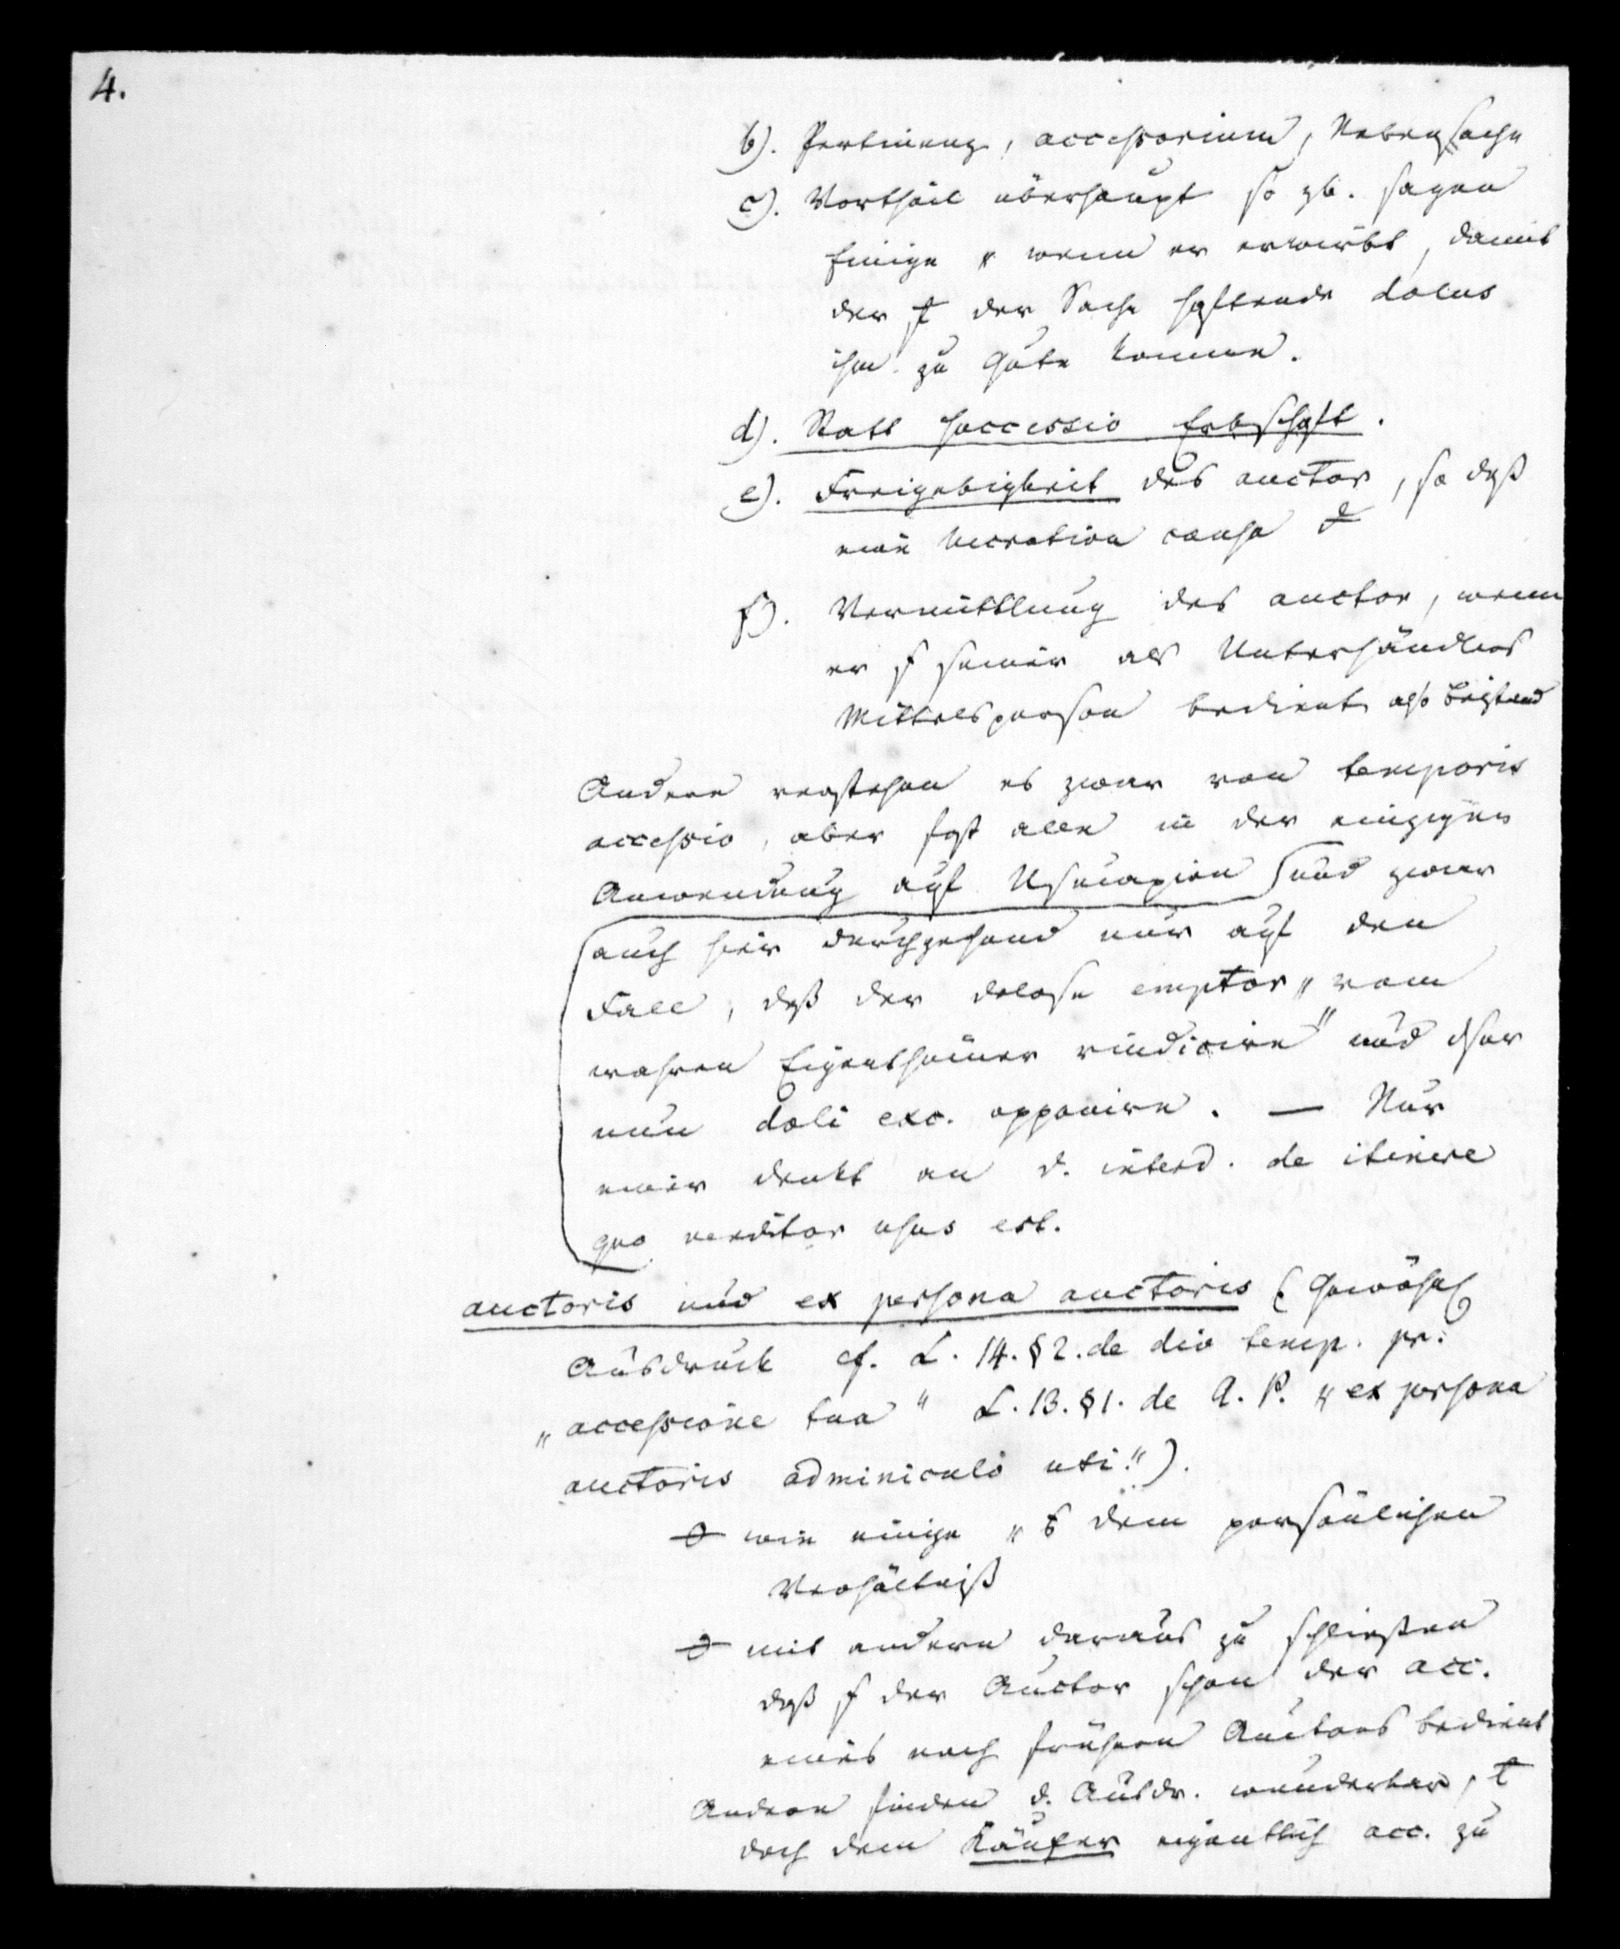 4.
b). Pertinenz, accessorium, Nebensache
c). Vortheil überhaupt so zb. sagen
Einige „ wenn er erwirbt, damit
der der Sache haftende dolus
ihm zu Gute komme.
d). Statt successio Erbschaft.
e). Freigebigkeit des auctor, so daß
eine lucrative causa
f). Vermittlung des auctor, wenn
er seiner als Unterhändlers
Mittelsperson bedient, also Beistand
Andere verstehen es zwar von temporis
accessio, aber fast alle in der einzigen
Anwendung auf Usucapion und zwar
auch hier durchgehend nur auf den
Fall, daß der dolose emptor „vom
wahren Eigenthümer vindicire“ und dser
nun doli exc. opponire. — Nur
einer denkt an d. interd. de itinere
quo venditor usus est.
auctoris und ex persona auctoris (Gewöhnl
Ausdruck cf. L. 14. § 2. de div temp. pr.
„accessione tua“ L. 13. § 1. de A. P. „ex persona
auctoris adminiculo uti.“).
wie einige „ dem persönlichen
Verhältniß
mit andern daraus zu schließen
daß der Auctor schon der acc.
eines noch frühern Auctors bedient
Andere finden d. Ausdr. wunderbar,
doch dem Käufer eigentlich acc. zu